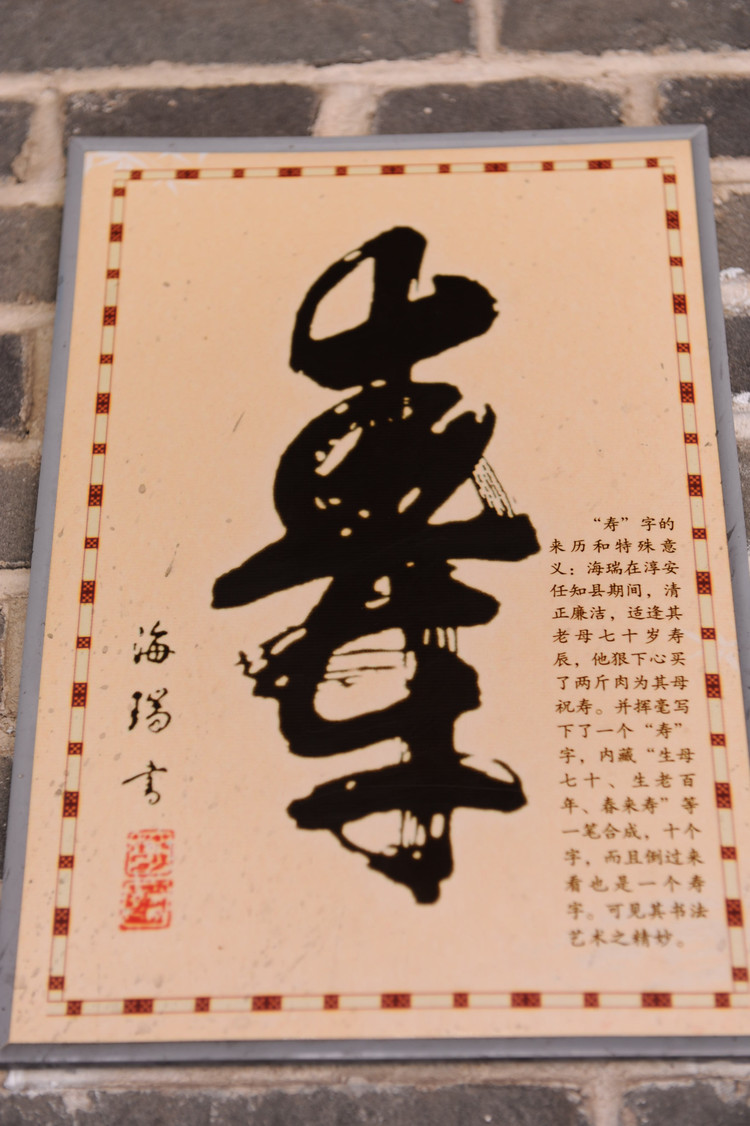 寿
“寿”字的
来历和特殊意
义：海瑞在淳安
任知县期间，清
正廉洁，适逢其
老母七十岁寿
辰，他狠下心买
了两斤肉为其母
祝寿。并挥毫写
下了一个“寿”
字，内藏“生母
七十、生老百
年、春来寿”等
一笔合成，十个
字，而且倒过来
看也是一个寿
字。可见其书法
艺术之精妙。
海瑞书